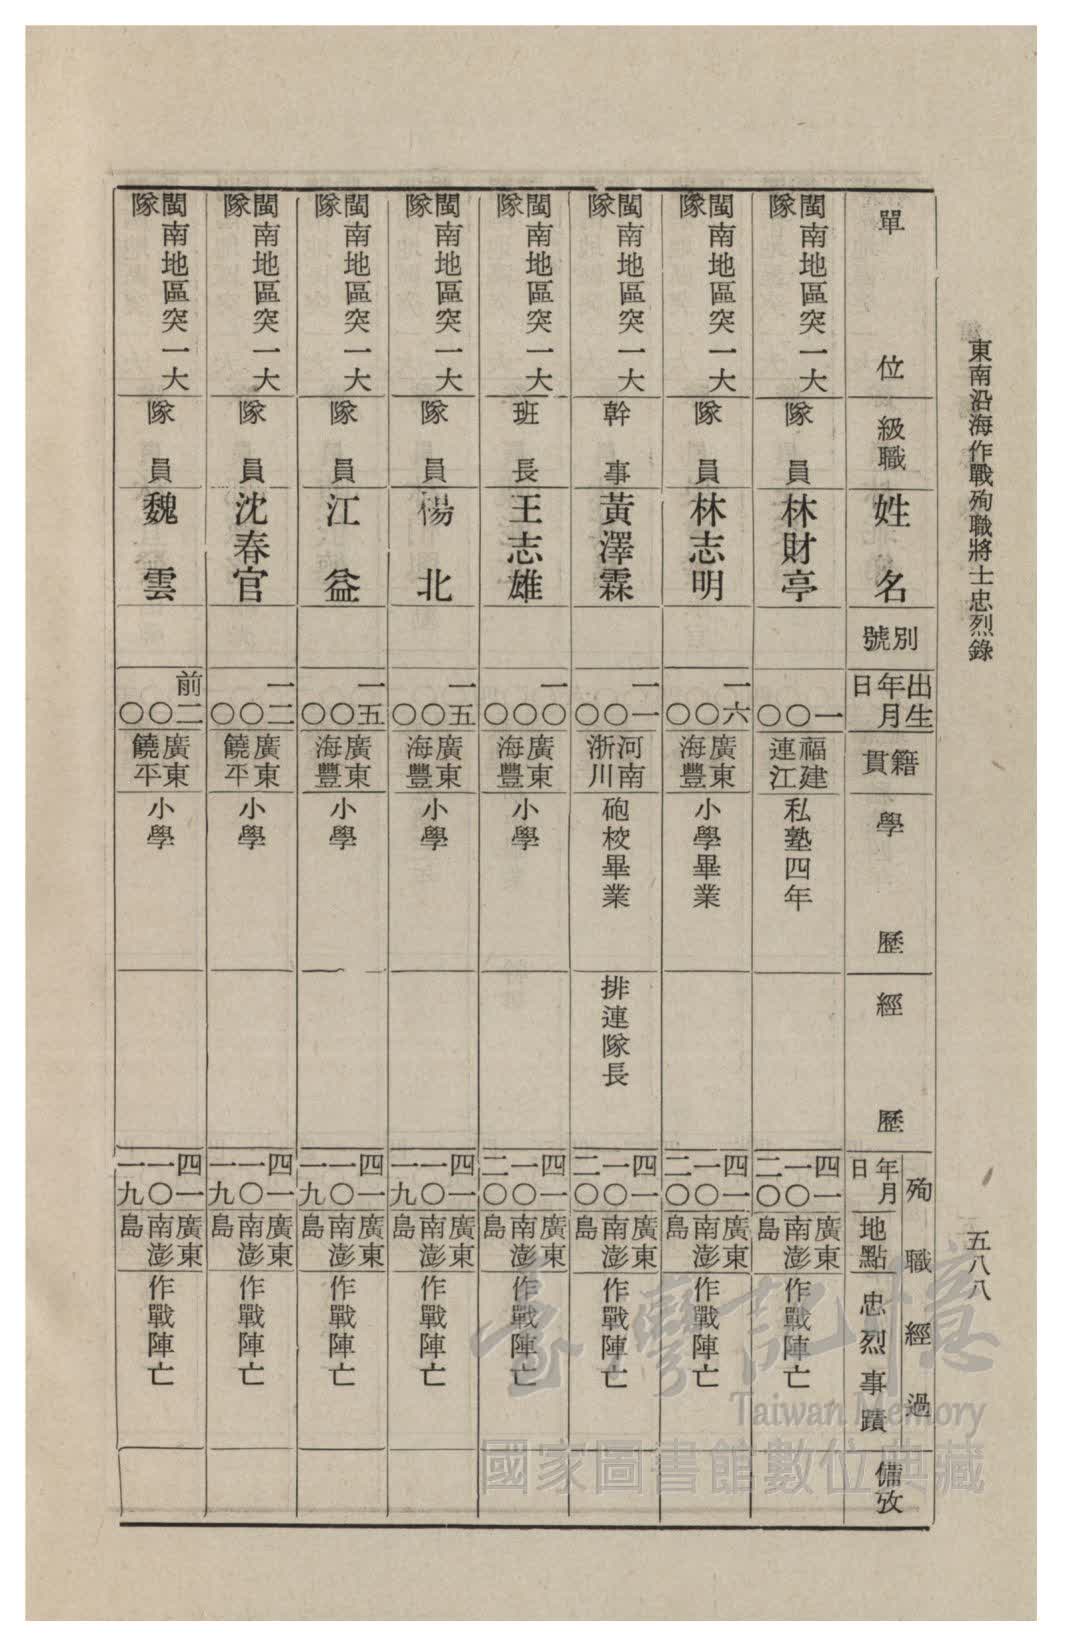 東南沿海作戰殉職將士忠烈錄
五八八
單位
級職
姓名
別號
出生年月日
籍貫
學歷
經歷
殉職經過
年月日
地點
忠烈事蹟
備攷
閩南地區突一大隊
隊員
林財亭
一〇〇
福建連江
私塾四年
四一一〇二〇
廣東南澎島
作戰陣亡
閩南地區突一大隊
隊員
林志明
一六〇〇
廣東海豐
小學畢業
四一一〇二〇
廣東南澎島
作戰陣亡
閩南地區突一大隊
幹事
黃澤霖
一一〇〇
河南浙川
砲校畢業
排連隊長
四一一〇二〇
廣東南澎島
作戰陣亡
閩南地區突一大隊
班長
王志雄
一〇〇〇
廣東海豐
小學
四一一〇二〇
廣東南澎島
作戰陣亡
閩南地區突一大隊
隊員
楊北
一五〇〇
廣東海豐
小學
四一一〇一九
廣東南澎島
作戰陣亡
閩南地區突一大隊
隊員
江益
一五〇〇
廣東海豐
小學
四一一〇一九
廣東南澎島
作戰陣亡
閩南地區突一大隊
隊員
沈春官
一二〇〇
廣東饒平
小學
四一一〇一九
廣東南澎島
作戰陣亡
閩南地區突一大隊
隊員
魏雲
前二〇〇
廣東饒平
小學
四一一〇一九
廣東南澎島
作戰陣亡
臺灣記憶
Taiwan Memory
國家圖書館數位典藏